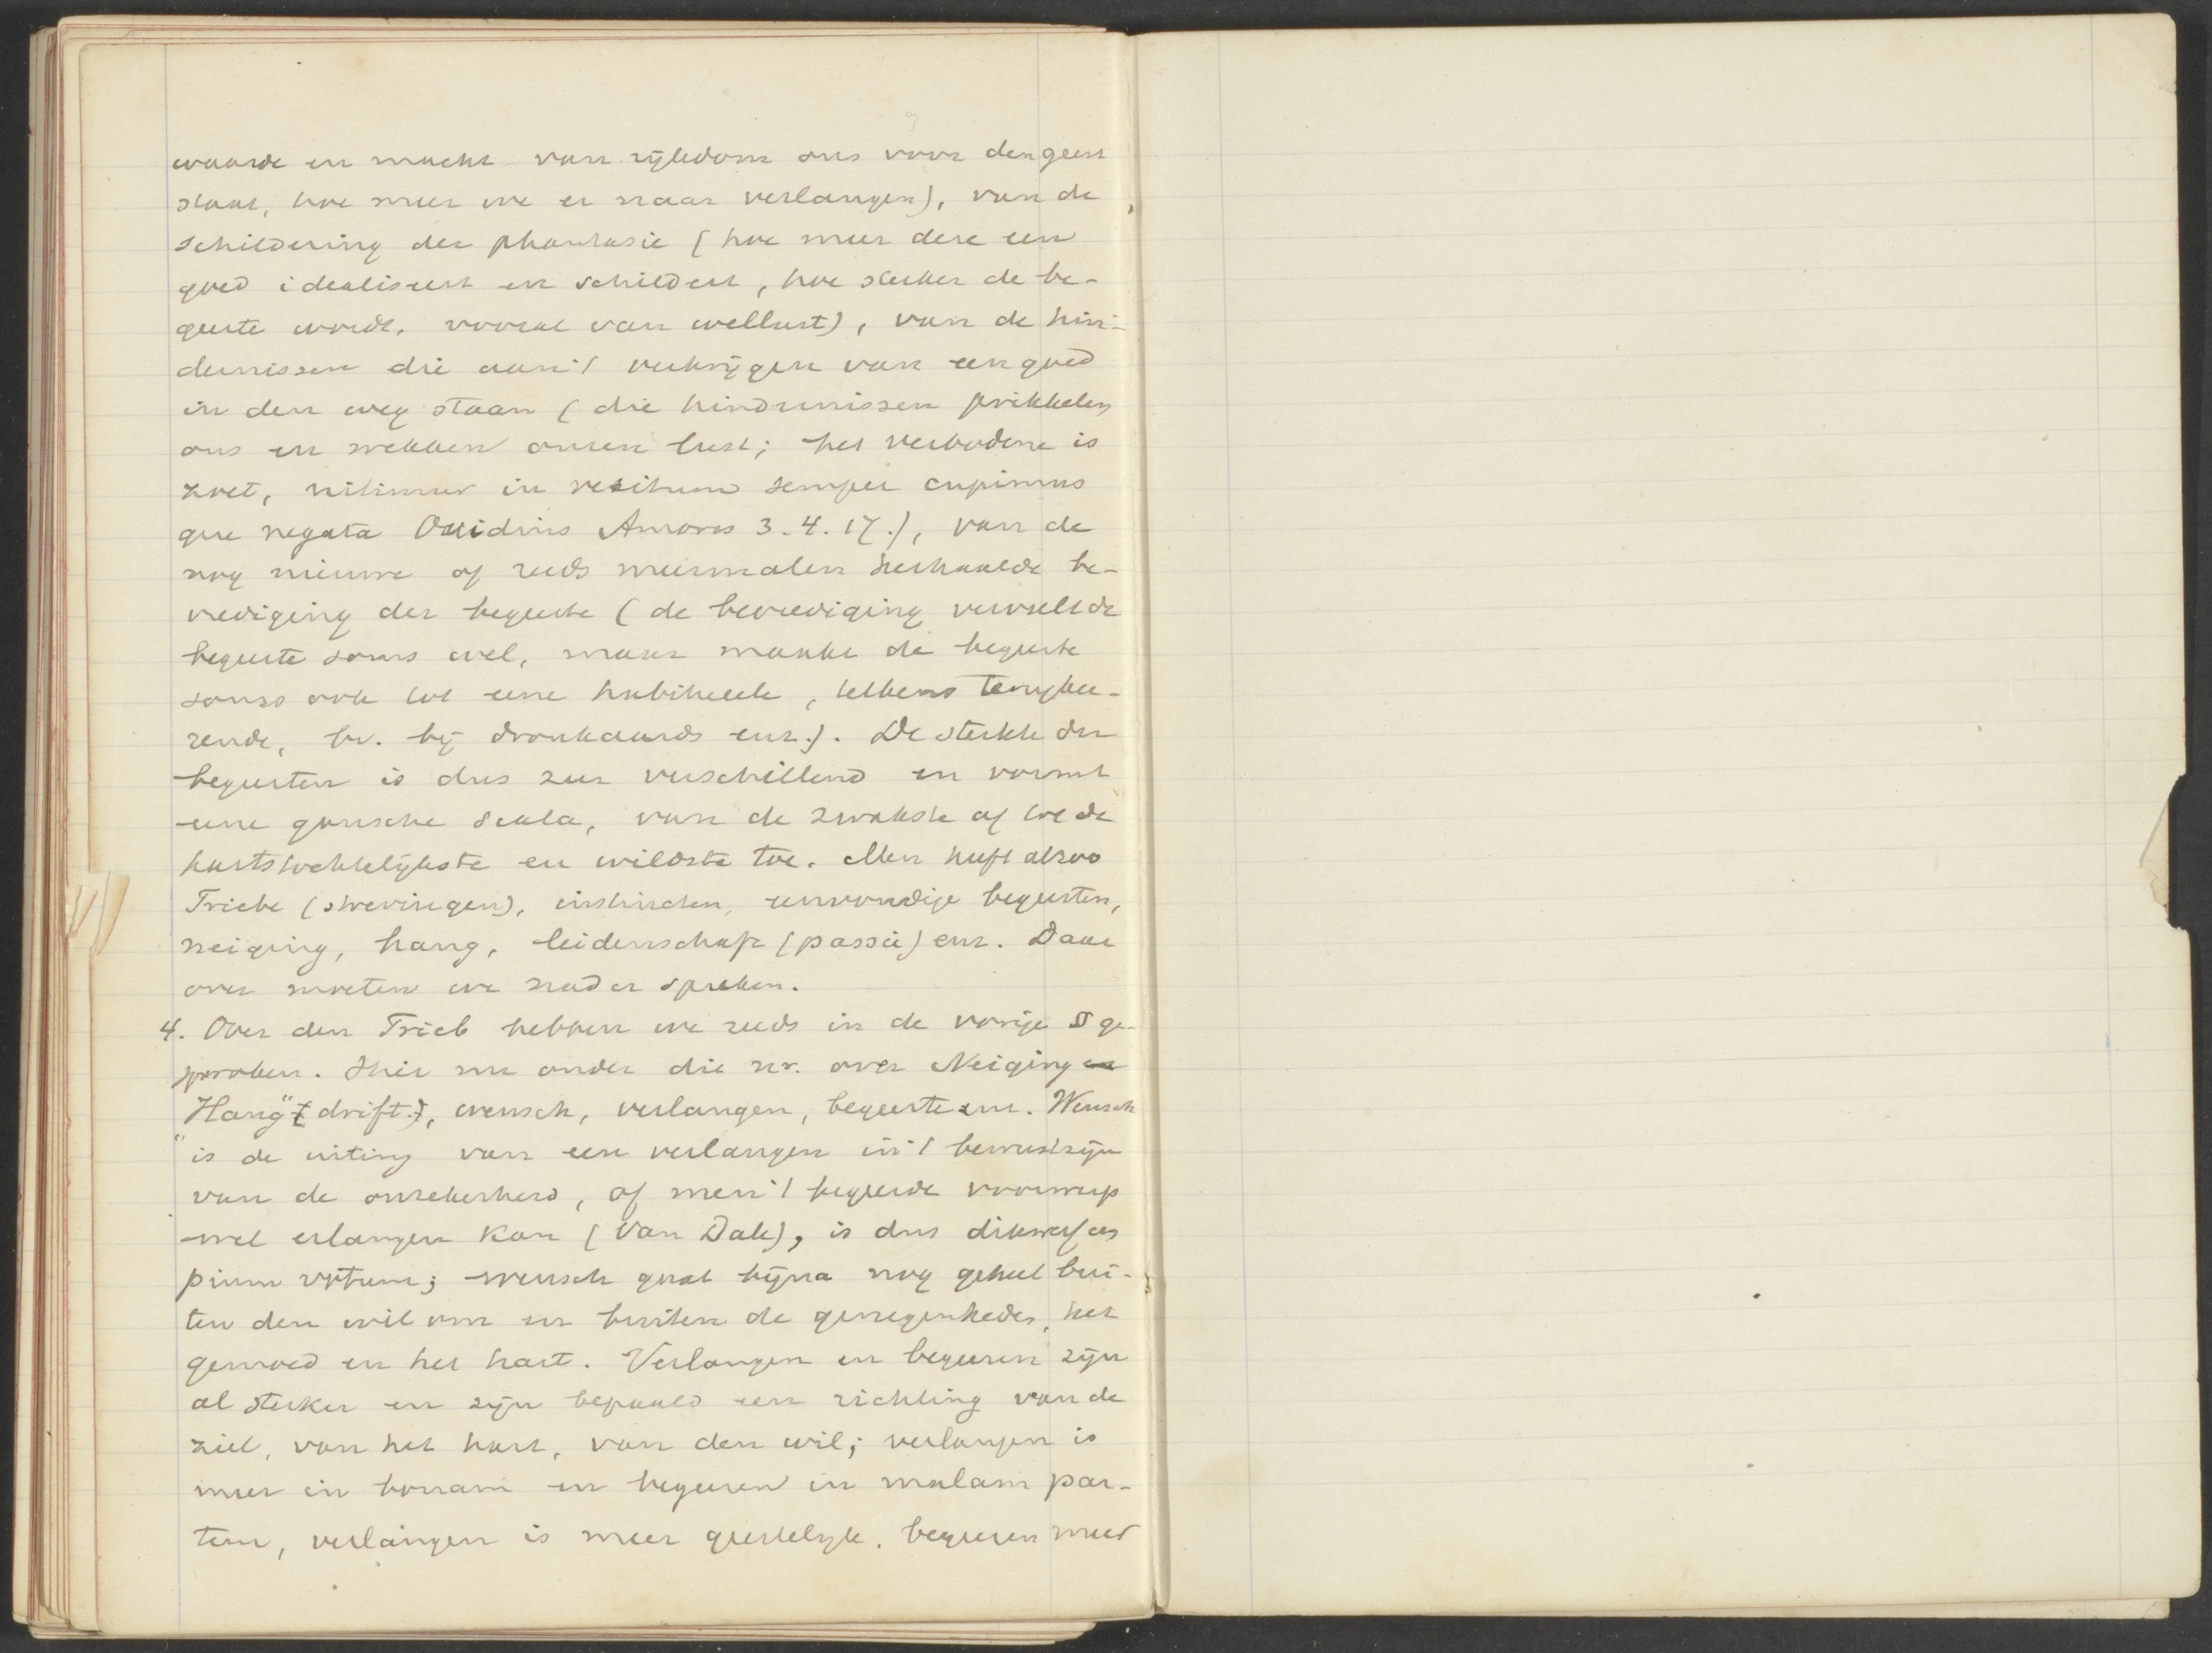 waarde en macht van rijkdom ons voor den geest
staat, hoe meer we er naar verlangen), van de
schildering der phantasie (hoe meer deze een
goed idealiseert en schildert, hoe sterker de be-
geerte wordt, vooral van wellust), van de hin-
dernissen die aan 't verkrijgen van een goed
in den weg staan (die hindernissen prikkelen
ons en wekken onzen lust; het verbodene is
zoet, nitimur in vetitum semper cupimus
que negata Ovidius Amores 3.4.17.), van de
nog nieuwe of reeds meermalen herhaalde be-
vrediging der begeerte (de bevrediging vervult de
begeerte soms wel, maar maakt de begeerte
soms ook tot eene habitueele, telkens terugkee-
rende, bv. bij dronkaards enz.). De sterkte der
begeerten is dus zeer verschillend en vormt
eene gansche scala, van de zwakste af tot de
hartstochtelijkste en wildste toe. Men heeft alzoo
Triebe (strevingen), instincten, eenvoudige begeerten,
neiging, hang, leidenschaft (passie) enz. Daar
over moeten we nader spreken.
4. Over den Trieb hebben we reeds in de vorige § ge-
sproken. Hier nu onder die nr. over Neiging en
Hang" (drift.), wensch, verlangen, begeerte enz. Wensch
"is de uiting van een verlangen in 't bewustzijn
van de onzekerheid, of men 't begeerde voorwerp
wel erlangen kan (Van Dale), is dus dikwerf een
pium votum; wensch gaat bijna nog geheel bui-
ten den wil om en buiten de genegenheden, het
gemoed en het hart. Verlangen en begeeren zijn
al sterker en zijn bepaald een richting van de
ziel, van het hart, van den wil; verlangen is
meer in bonam en begeeren in malam par-
tem, verlangen is meer geestelijk, begeeren meer